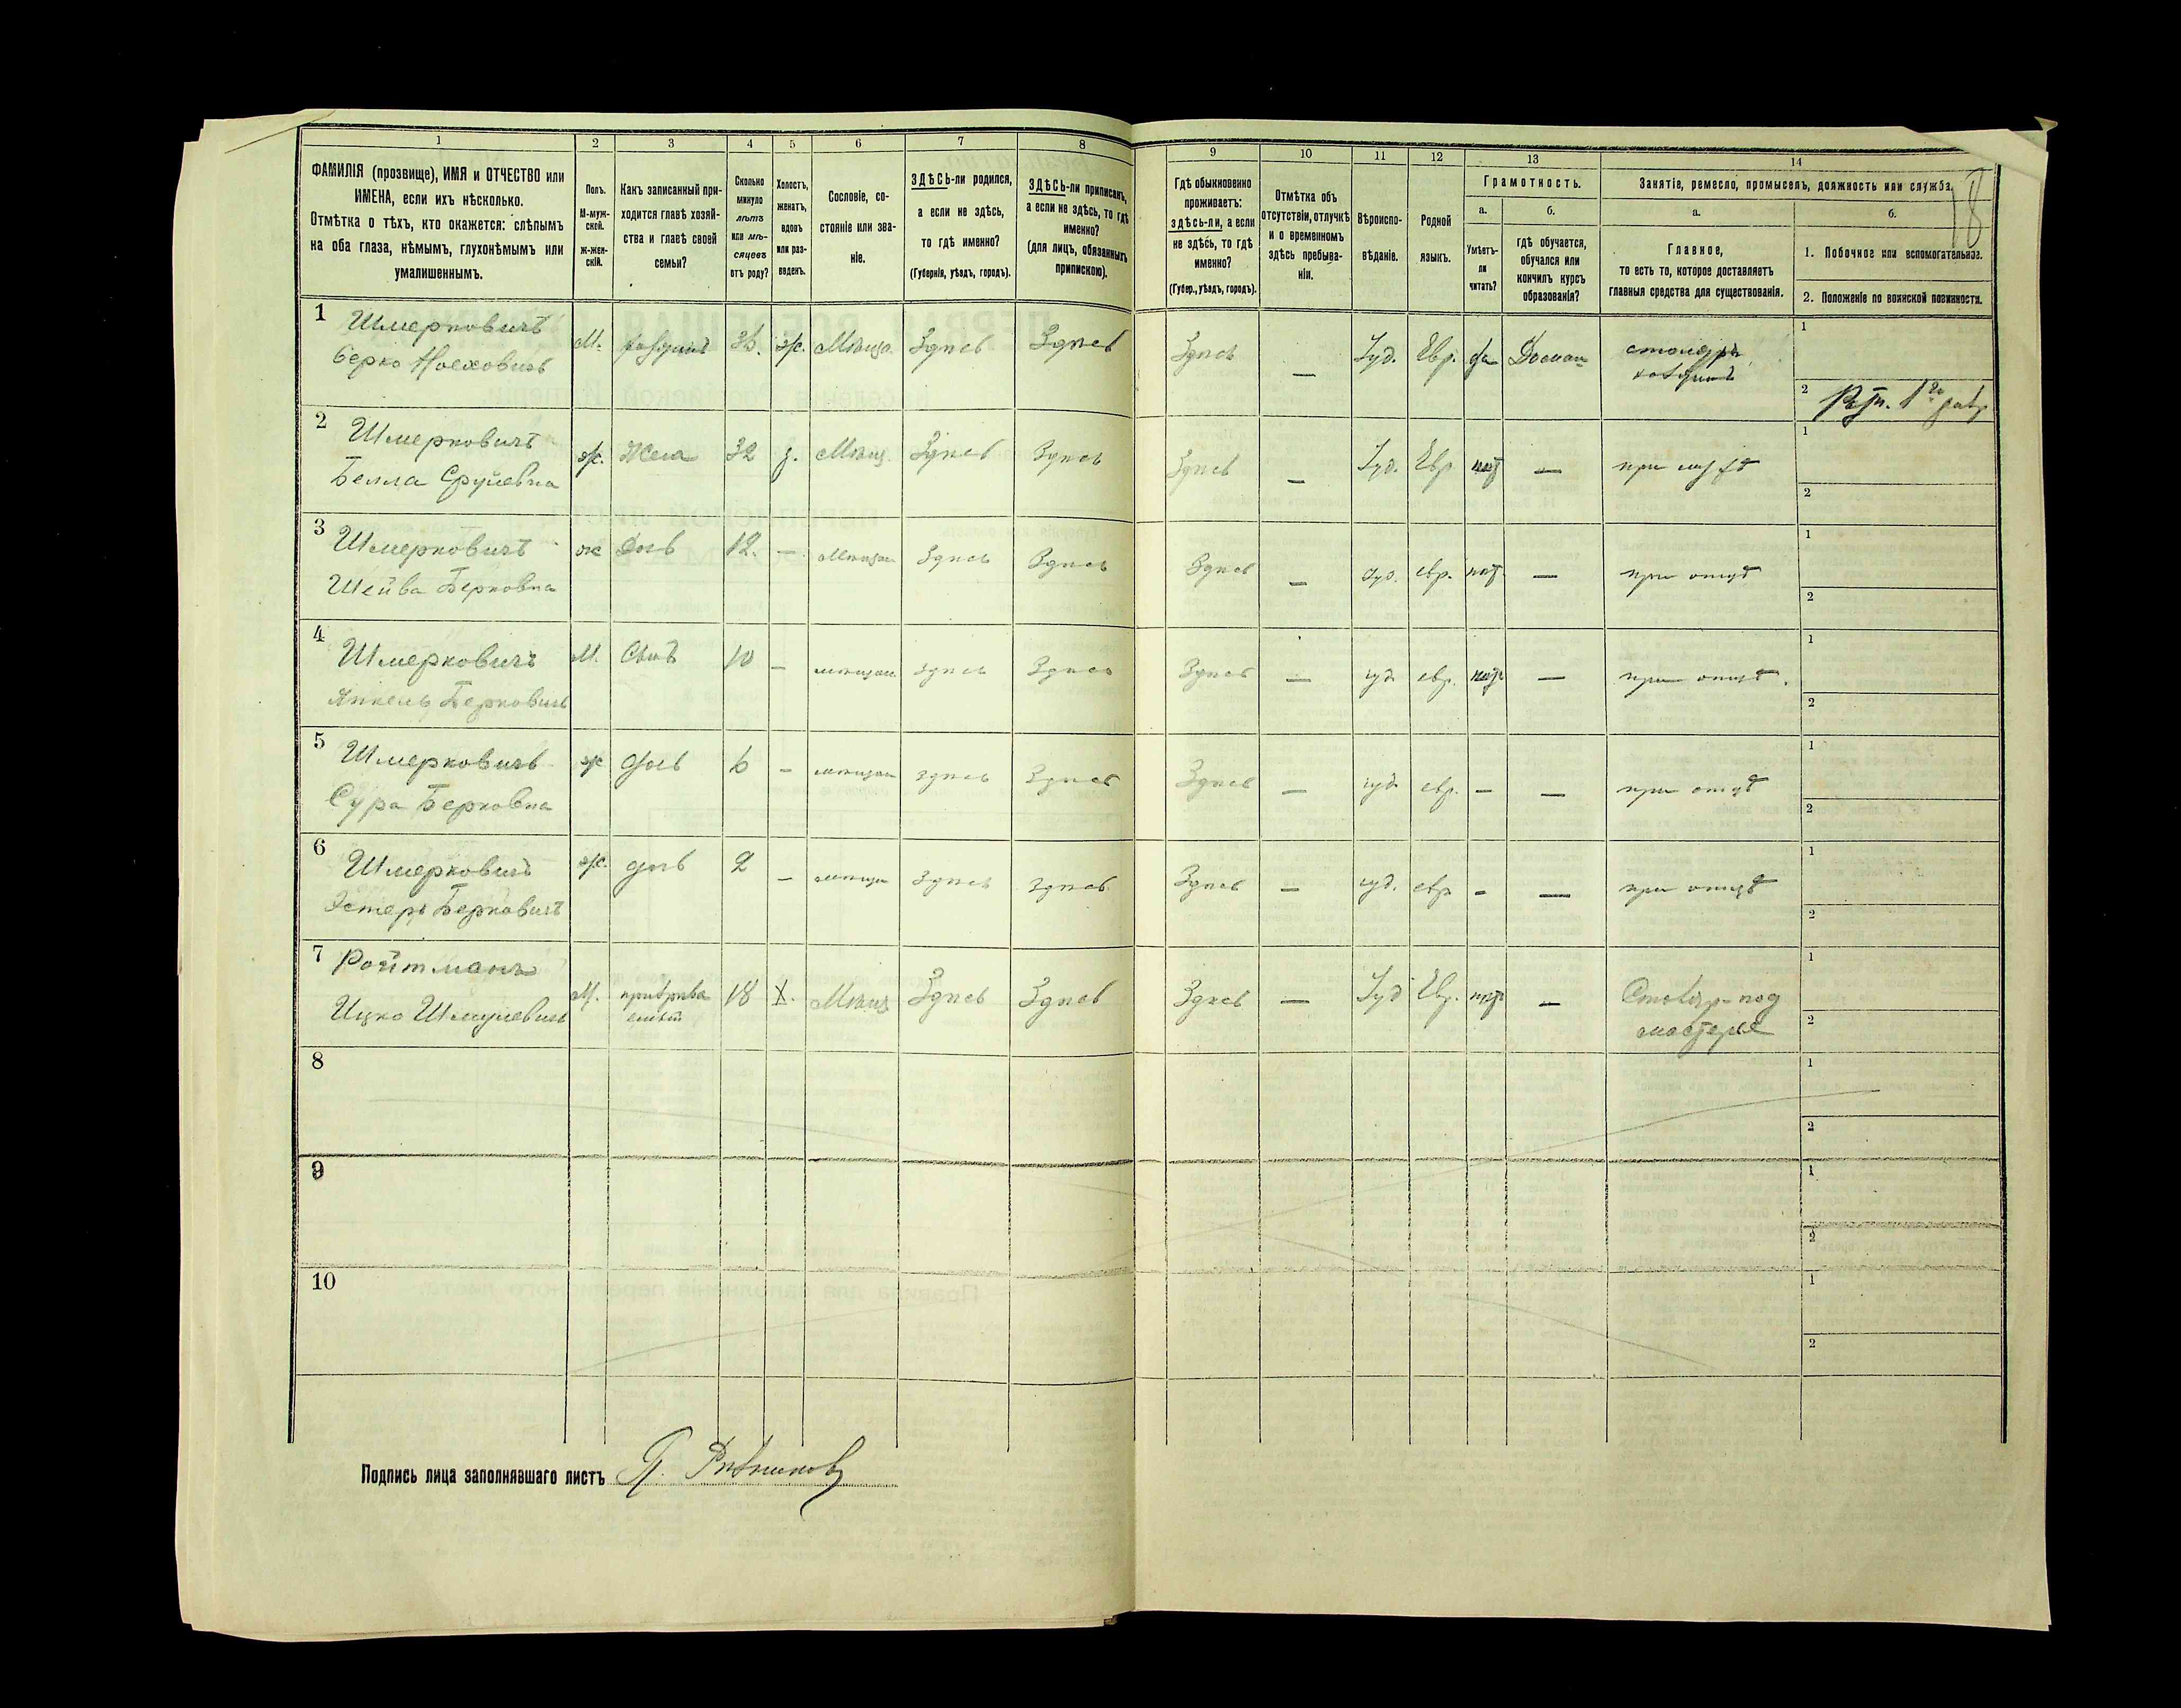 1
2
3
4
5
6
7
8
9
10
11
12
13
14
18
ФАМИЛІЯ (прозвище), ИМЯ и ОТЧЕСТВО или
ИМЕНА, если ихъ нѣсколько.
Отмѣтка о тѣхъ, кто окажется: слѣпымъ
на оба глаза, нѣмымъ, глухонѣмымъ или
умалишеннымъ.
Полъ.
М-муж-
ской.
Ж-жен-
скій.
Какъ записанный при-
ходится главѣ хозяй-
ства и главѣ своей
семьи?
Сколько
минуло
лѣтъ
или мѣ-
сяцевъ
отъ роду?
Холостъ,
женатъ,
вдовъ
или раз-
веденъ.
Сословіе, со-
стояніе или зва-
ніе.
ЗДѢСЬ-ли родился,
а если не здѣсь,
то гдѣ именно?
(Губернія, уѣздъ, городъ).
ЗДѢСЬ-ли приписанъ,
а если не здѣсь, то гдѣ
именно?
(для лицъ, обязанныхъ
припискою).
Гдѣ обыкновенно
проживаетъ:
здѣсь-ли, а если
не здѣсь, то гдѣ
именно?
(Губер., уѣздъ, городъ).
Отмѣтка объ
отсутствіи, отлучкѣ
и о временномъ
здѣсь пребыва-
ніи.
Вѣроиспо-
вѣданіе.
Родной
языкъ.
Грамотность.
а.
Умѣетъ-
ли
читать?
б.
гдѣ обучается,
обучался или
кончилъ курсъ
образованія?
Занятіе, ремесло, промыселъ, должность или служба.
а.
Главное,
то есть то, которое доставляетъ
главныя средства для существованія.
б.
1. Побочное или вспомогательное.
2. Положеніе по воинской повинности.
1 Шмерковичъ М. 36. ж. Мѣща. Здѣсь Здѣсь Здѣсь — Іуд. Евр. да Домаш столяръ 1
Берко хозяинъ 2
2 Шмерковичъ ж. Жена 32 з. Мѣщ. Здѣсь Здѣсь Здѣсь — Іуд. Евр нѣт — при мужѣ 1
Бейла Сруйевна 2
3 Шмерковичъ ж Дочь 12. — Мѣщан Здѣсь Здѣсь Здѣсь — Іуд. евр. нѣт. — при отцѣ 1
Шейва Берковна 2
4 Шмерковичъ М. Сынъ 10 — мѣщан Здѣсь Здѣсь Здѣсь — іуд. евр. нѣт — при отцѣ. 1
Янкель Берковичъ 2
5 Шмерковичъ ж дочь 6 — мѣщан здѣсь Здѣсь Здѣсь — іуд. евр. — — при отцѣ 1
Сура Берковна 2
6 Шмерковичъ ж. дочь 2 — мѣщан Здѣсь Здѣсь Здѣсь — іуд. евр — — при отцѣ 1
Эстеръ Берковичъ 2
7 Ройтманъ М. 18 X. Мѣщ Здѣсь Здѣсь Здѣсь — Іуд Евр. нѣт — Столяр-под 1
Ицко Шмулевичъ мастерье 2
8 1
2
9 1
2
10 1
2
Подпись лица заполнявшаго листъ